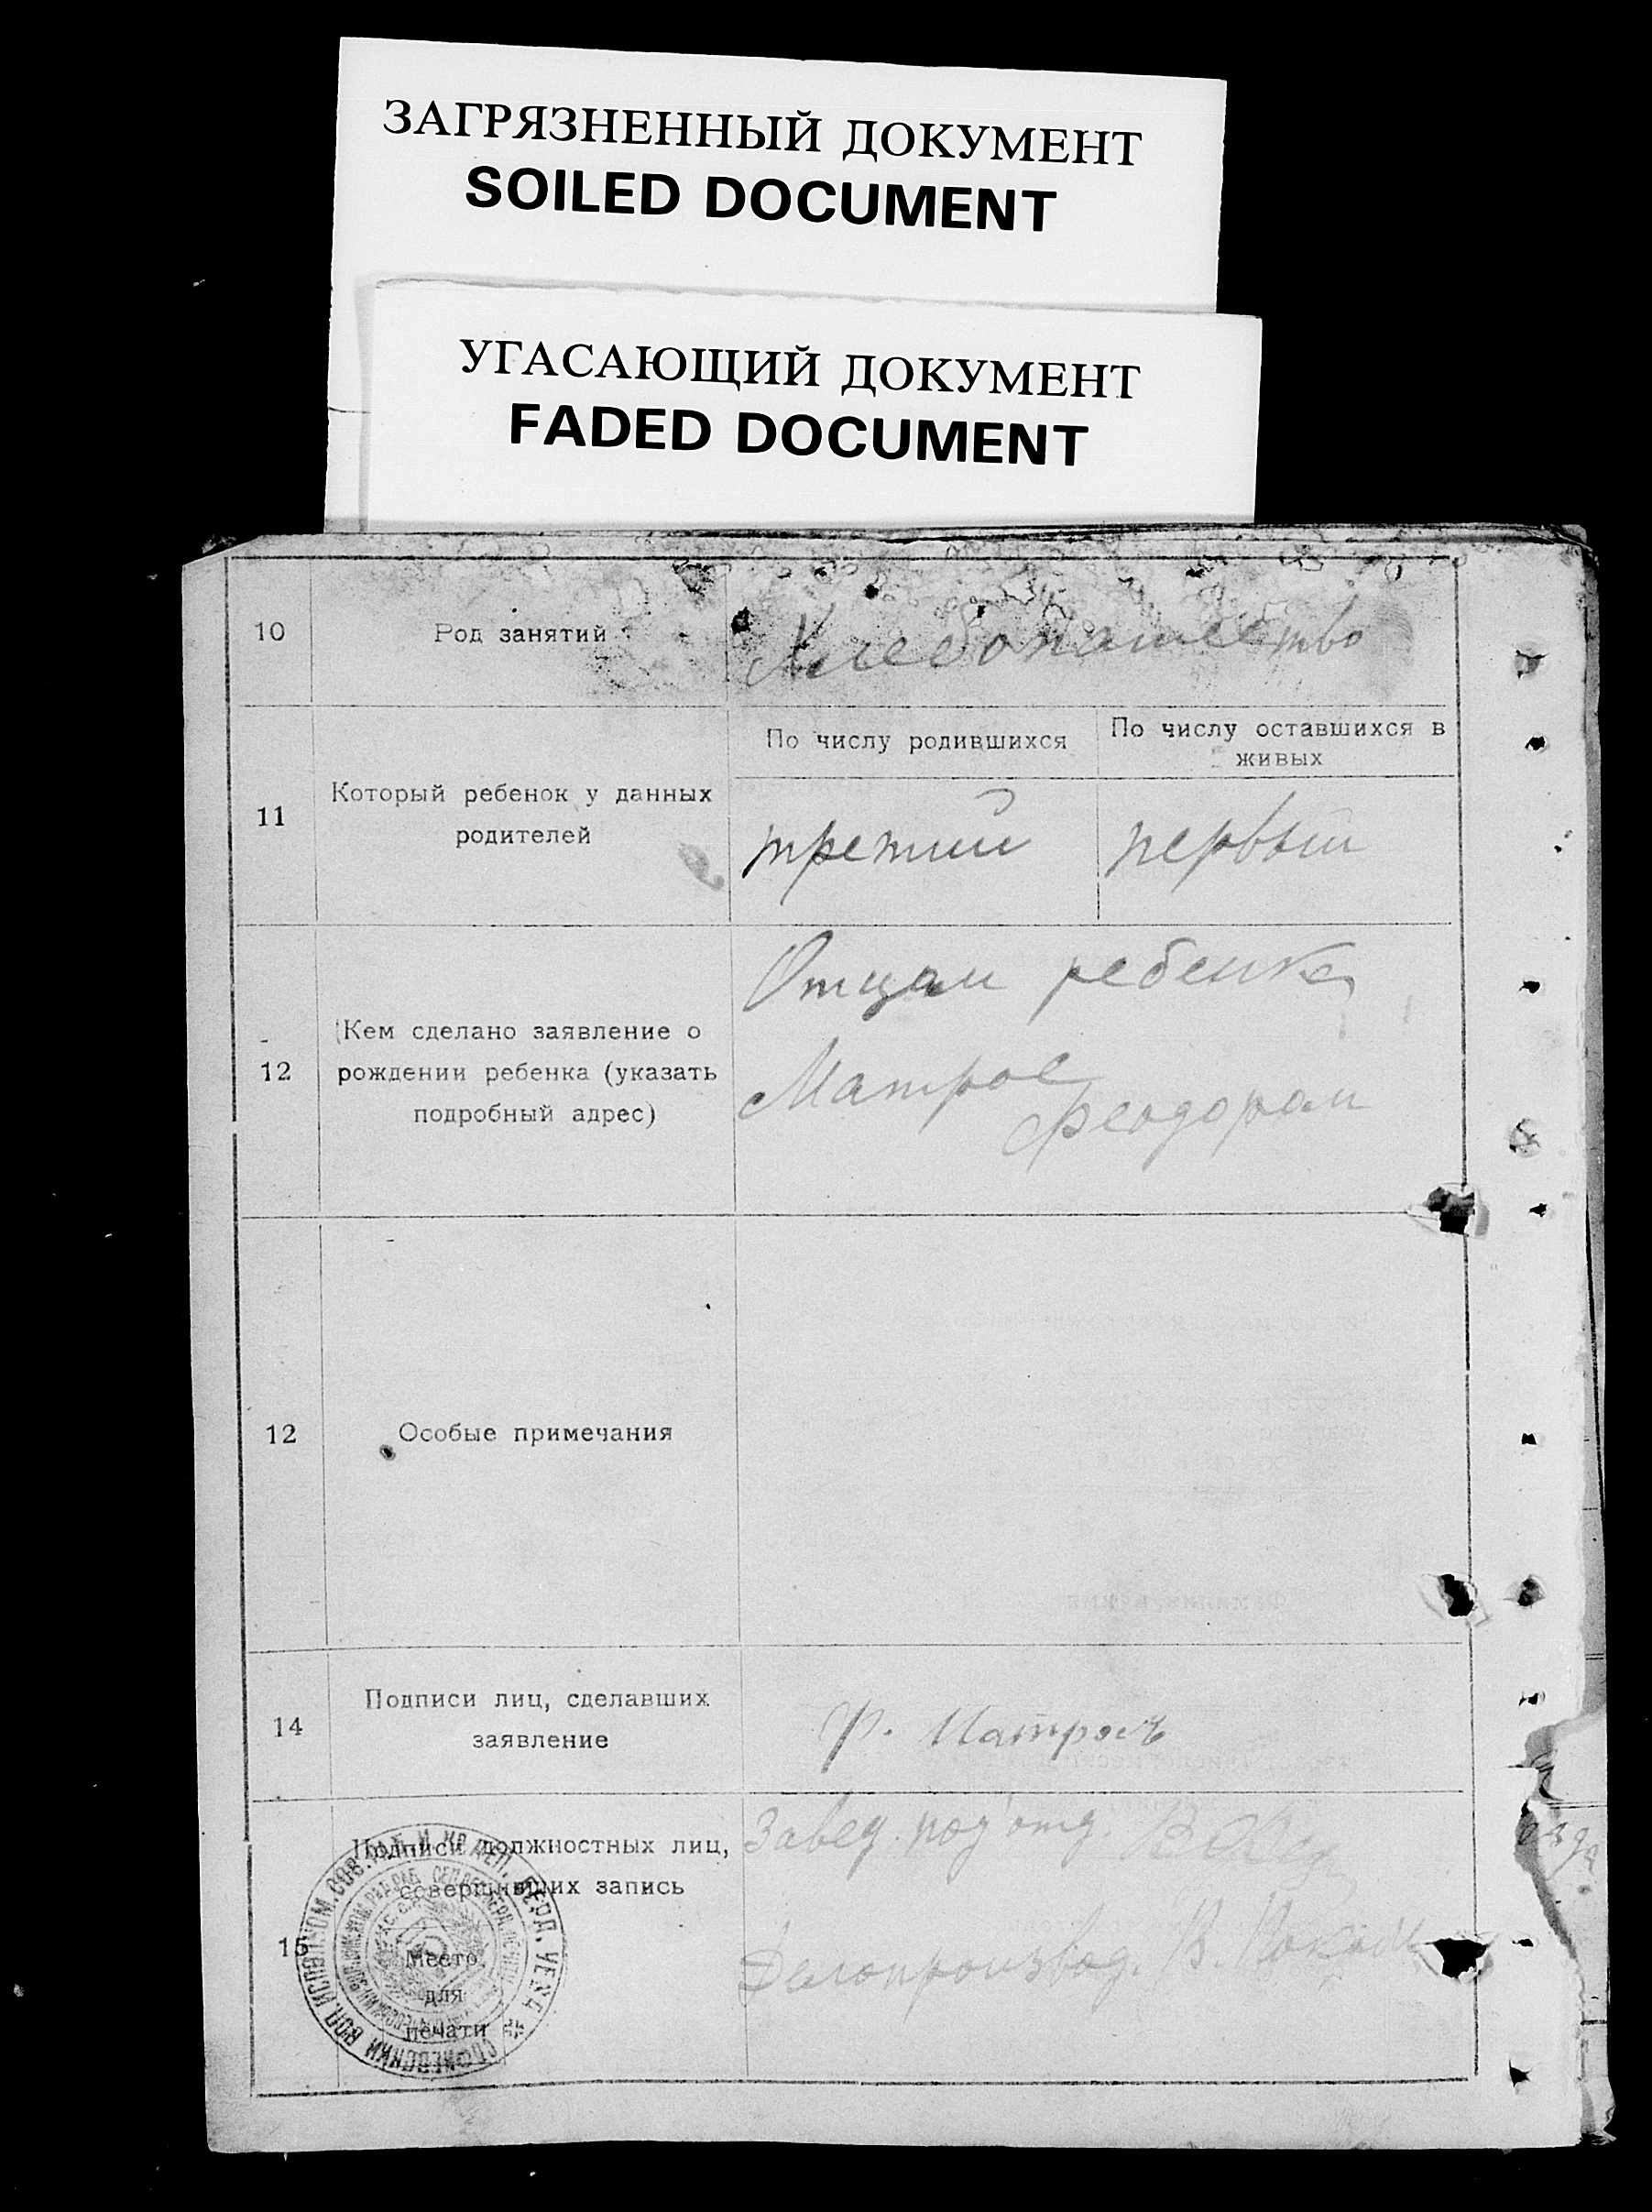 ЗАГРЯЗНЕННЫЙ ДОКУМЕНТ
SOILED DOCUMENT
УГАСАЮЩИЙ ДОКУМЕНТ
FADED DOCUMENT
10
Род занятий
Хлебопашество
11
Который ребенок у данных
родителей
По числу родившихся
По числу оставшихся в
живых
третий
первый
12
Кем сделано заявление о
рождении ребенка (указать
подробный адрес)
Отцом ребенка
Матрос
Феодором
12
Особые примечания
14
Подписи лиц, сделавших
заявление
Ф. Матросъ
15
Подписи должностных лиц,
совершивших запись
Место
для
печати
Завед. под'отд.
Делопроизвод. В.